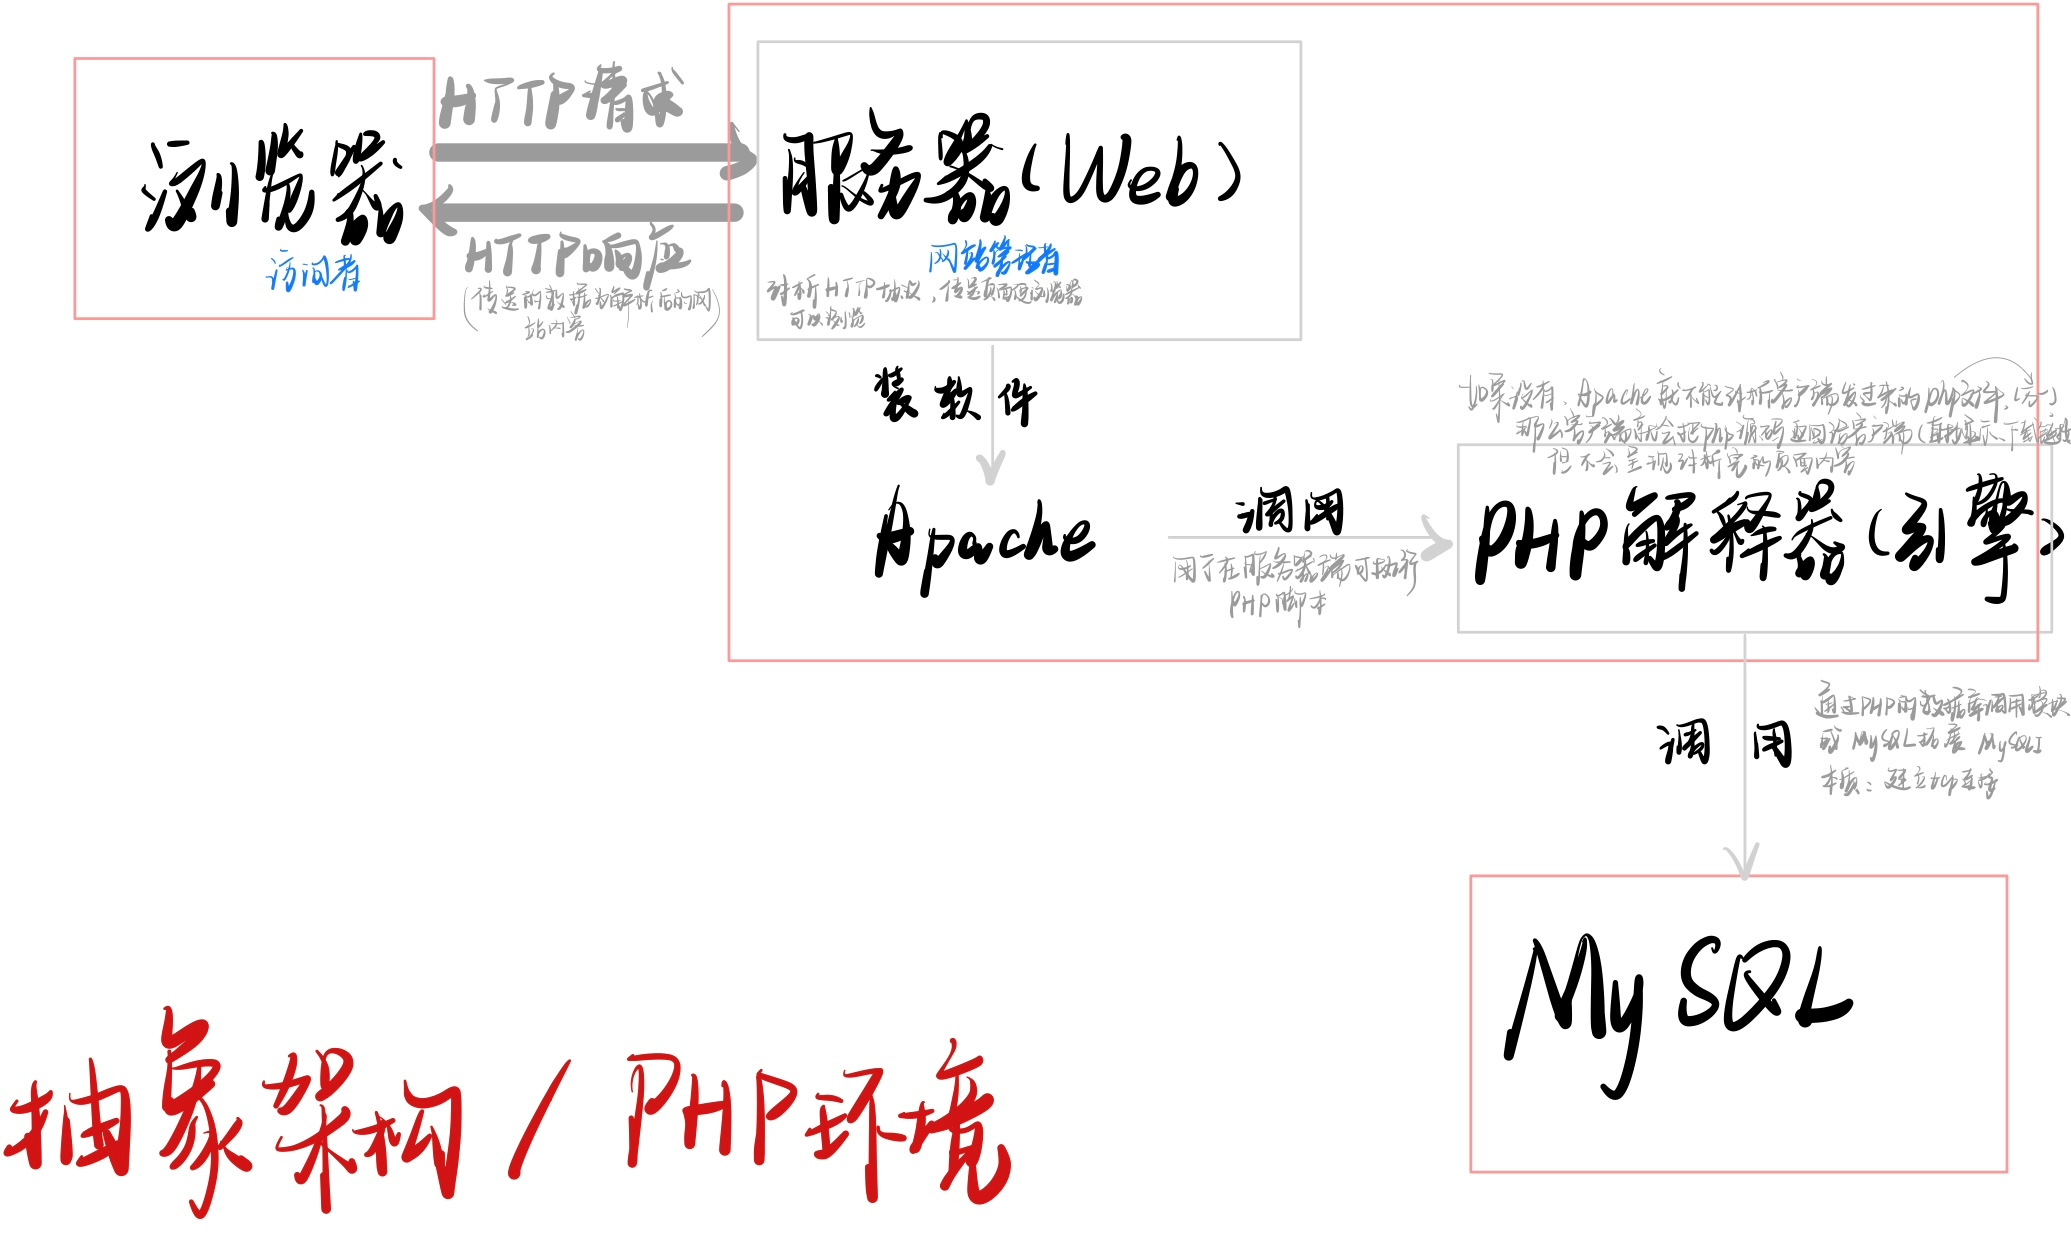 HTTP请求
浏览器
访问者
HTTP响应
(传递的数据为解析后的网
站内容)
服务器(Web)
网站管理者
解析HTTP协议,传递页面使浏览器
可以浏览
装软件
Apache
调用
用于在服务器端可执行
PHP脚本
如果没有,Apache就不能解析客户端发过来的php文件,
那么客户端就会把php源码返回给客户端(直接显示、下载
但不会呈现解析完的页面内容
PHP解释器(引擎)
调用
通过PHP的数据库调用模块
或MySQL拓展 MySQLI
本质:建立tcp连接
MySQL
抽象架构/PHP环境